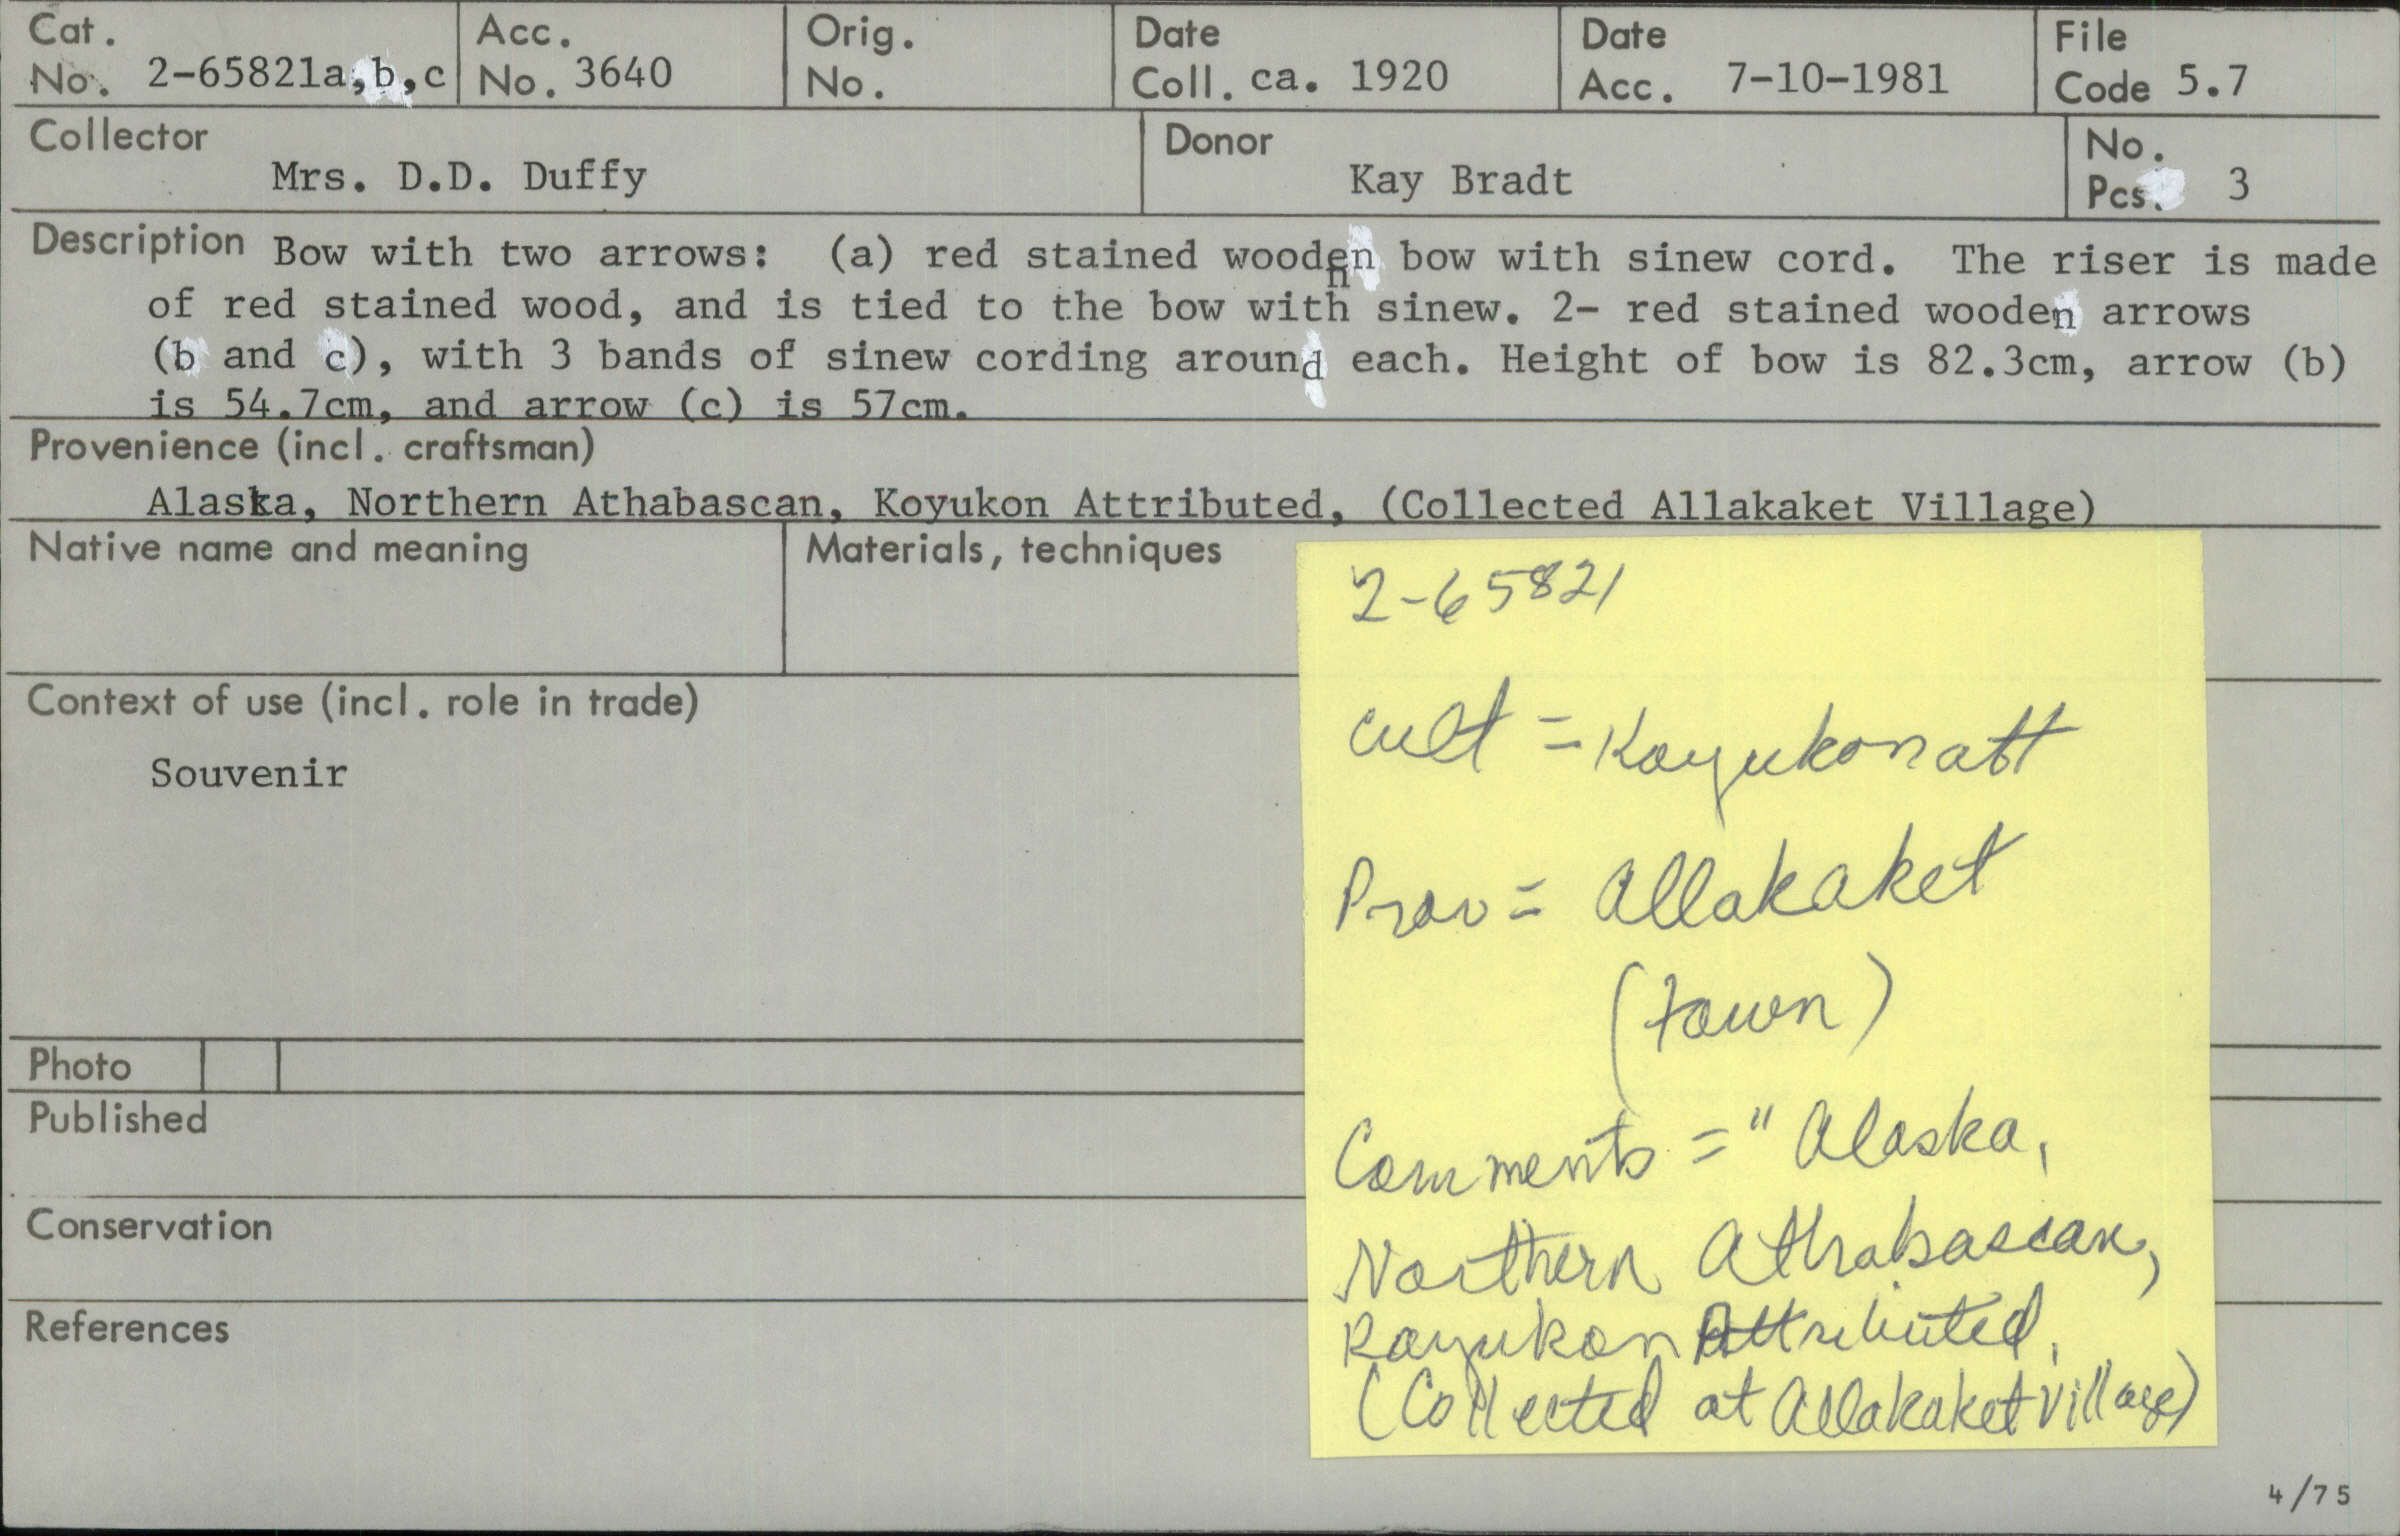 Cat. No. 2-65821a,b,c
Acc. No. 3640
Orig. No.
Date Coll. ca. 1920
Date Acc. 7-10-1981
File Code 5.7
Collector
Mrs. D.D. Duffy
Donor
Kay Bradt
No. Pcs. 3
Description Bow with two arrows: (a) red stained wooden bow with sinew cord. The riser is made
of red stained wood, and is tied to the bow with sinew. 2- red stained wooden arrows
(b and c), with 3 bands of sinew cording around each. Height of bow is 82.3cm, arrow (b)
is 54.7cm, and arrow (c) is 57cm.
Provenience (incl. craftsman)
Alaska, Northern Athabascan, Koyukon Attributed, (Collected Allakaket Village)
Native name and meaning
Materials, techniques
Context of use (incl. role in trade)
Souvenir
Photo
Published
Conservation
References
2-65821
Cult = Koyukon att
Prov = Allakaket
(town)
Comments = "Alaska,
Northern Athabascan,
Koyukon Attributed,
(Collected at Allakaket Village)
4/75